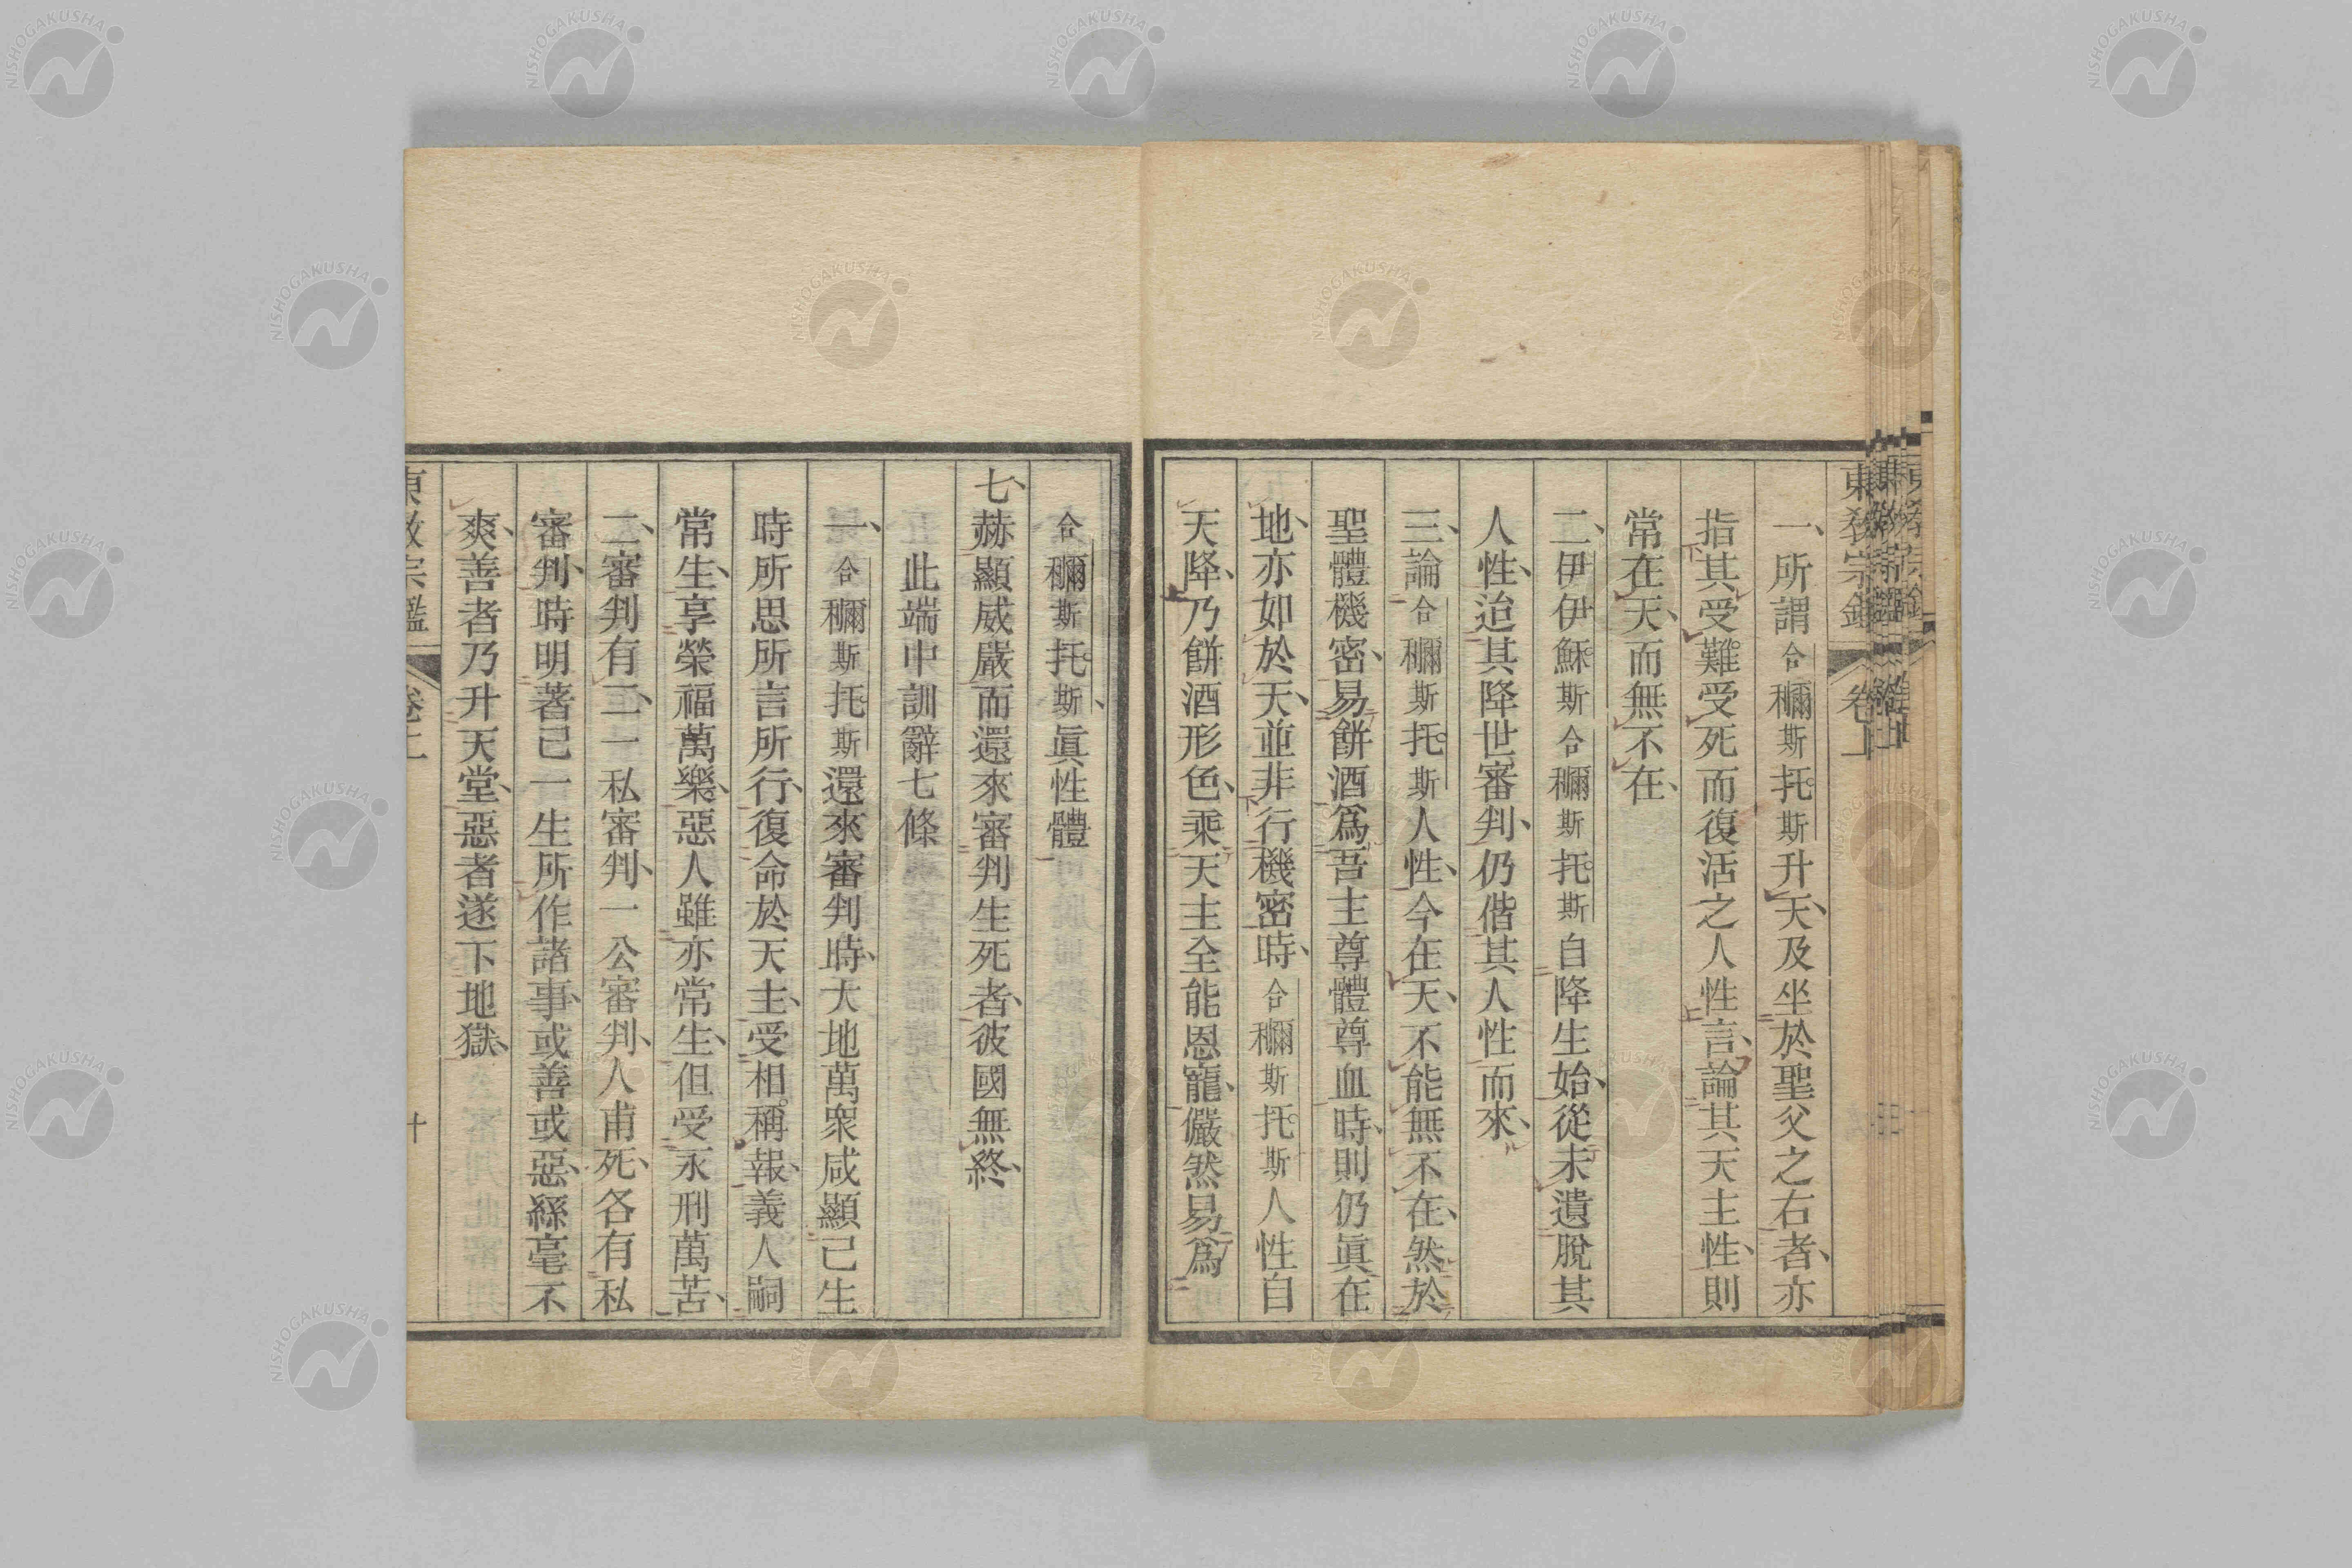 東敎宗鑑 卷上
一、所謂合𥣡斯托斯升天、及坐於聖父之右者、亦
指其受難受死而復活之人性言、論其天主性、則
常在天、而無不在、
二、伊伊穌斯合𥣡斯托斯自降生始、從未遺脫其
人性、迨其降世審判、仍偕其人性而來、
三、論合𥣡斯托斯人性、今在天、不能無不在、然於
聖體機密、易餅酒爲吾主尊體尊血時、則仍眞在
地、亦如於天、並非行機密時、合𥣡斯托斯人性自
天降、乃餅酒形色、乘天主全能恩寵、儼然易爲
合𥣡斯托斯、眞性體
七、赫顯威嚴而還來審判生死者、彼國無終、
此端中訓辭七條
一、合𥣡斯托斯還來審判時、大地萬衆咸顯己生
時所思所言所行、復命於天主、受相稱報、義人嗣
常生、享榮福萬樂、惡人雖亦常生、但受永刑萬苦、
二、審判有二、一私審判、一公審判、人甫死、各有私
審判、時明著己一生所作諸事、或善或惡、絲毫不
爽、善者乃升天堂、惡者遂下地獄、
東敎宗鑑 卷上 十
NISHOGAKUSHA